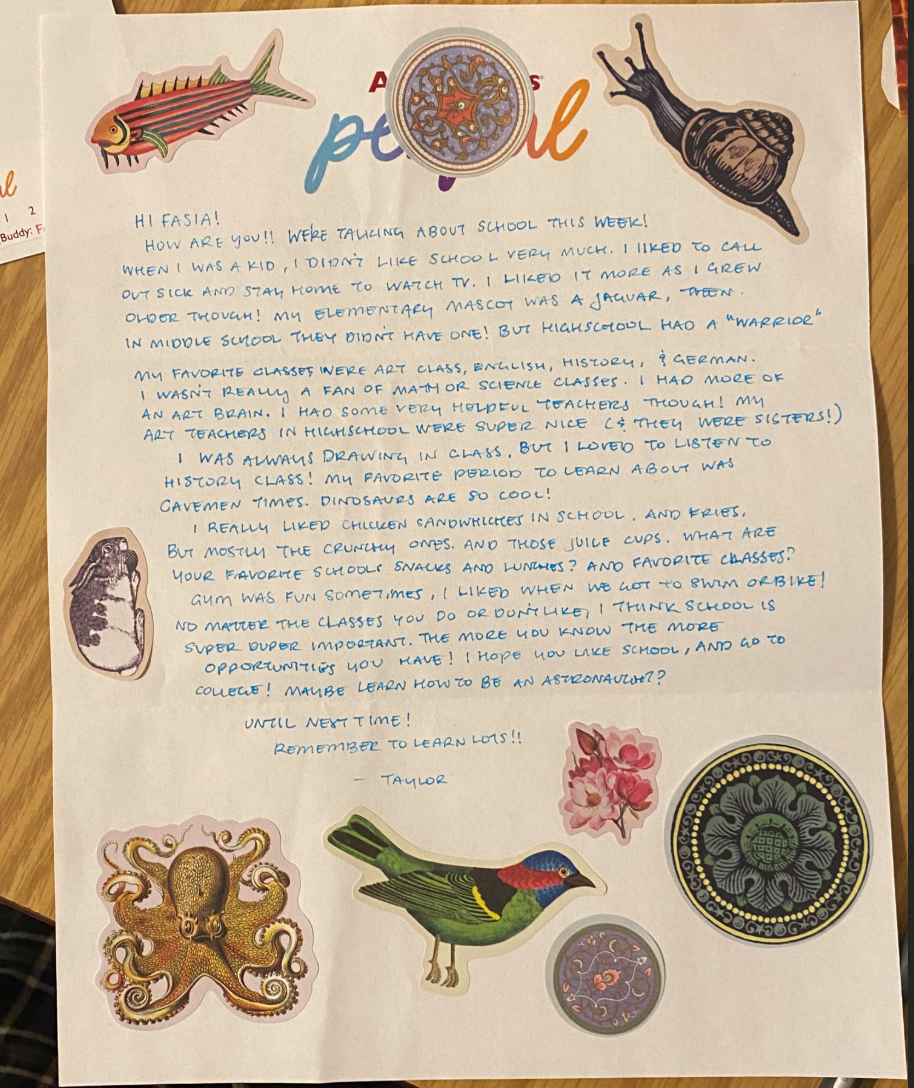 A S
pe al
HI FASIA!
HOW ARE YOU!! WE'RE TALKING ABOUT SCHOOL THIS WEEK!
WHEN I WAS A KID, I DIDN'T LIKE SCHOOL VERY MUCH. I LIKED TO CALL
OUT SICK AND STAY HOME TO WATCH TV. I LIKED IT MORE AS I GREW
OLDER THOUGH! MY ELEMENTARY MASCOT WAS A JAGUAR, THEN.
IN MIDDLE SCHOOL THEY DIDN'T HAVE ONE! BUT HIGHSCHOOL HAD A "WARRIOR"
MY FAVORITE CLASSES WERE ART CLASS, ENGLISH, HISTORY, & GERMAN.
I WASN'T REALLY A FAN OF MATH OR SCIENCE CLASSES. I HAD MORE OF
AN ART BRAIN. I HAD SOME VERY HELPFUL TEACHERS THOUGH! MY
ART TEACHERS IN HIGHSCHOOL WERE SUPER NICE (& THEY WERE SISTERS!)
I WAS ALWAYS DRAWING IN CLASS, BUT I LOVED TO LISTEN TO
HISTORY CLASS! MY FAVORITE PERIOD TO LEARN ABOUT WAS
CAVEMEN TIMES. DINOSAURS ARE SO COOL!
I REALLY LIKED CHICKEN SANDWHICHES IN SCHOOL. AND FRIES.
BUT MOSTLY THE CRUNCHY ONES. AND THOSE JUICE CUPS. WHAT ARE
YOUR FAVORITE SCHOOLS SNACKS AND LUNCHES? AND FAVORITE CLASSES?
GYM WAS FUN SOMETIMES, I LIKED WHEN WE GOT TO SWIM OR BIKE!
NO MATTER THE CLASSES YOU DO OR DON'T LIKE, I THINK SCHOOL IS
SUPER DUPER IMPORTANT. THE MORE YOU KNOW THE MORE
OPPORTUNITIES YOU HAVE! I HOPE YOU LIKE SCHOOL, AND GO TO
COLLEGE! MAYBE LEARN HOW TO BE AN ASTRONAUT?
UNTIL NEXT TIME!
REMEMBER TO LEARN LOTS!!
- TAYLOR
al
1 2
Buddy: F